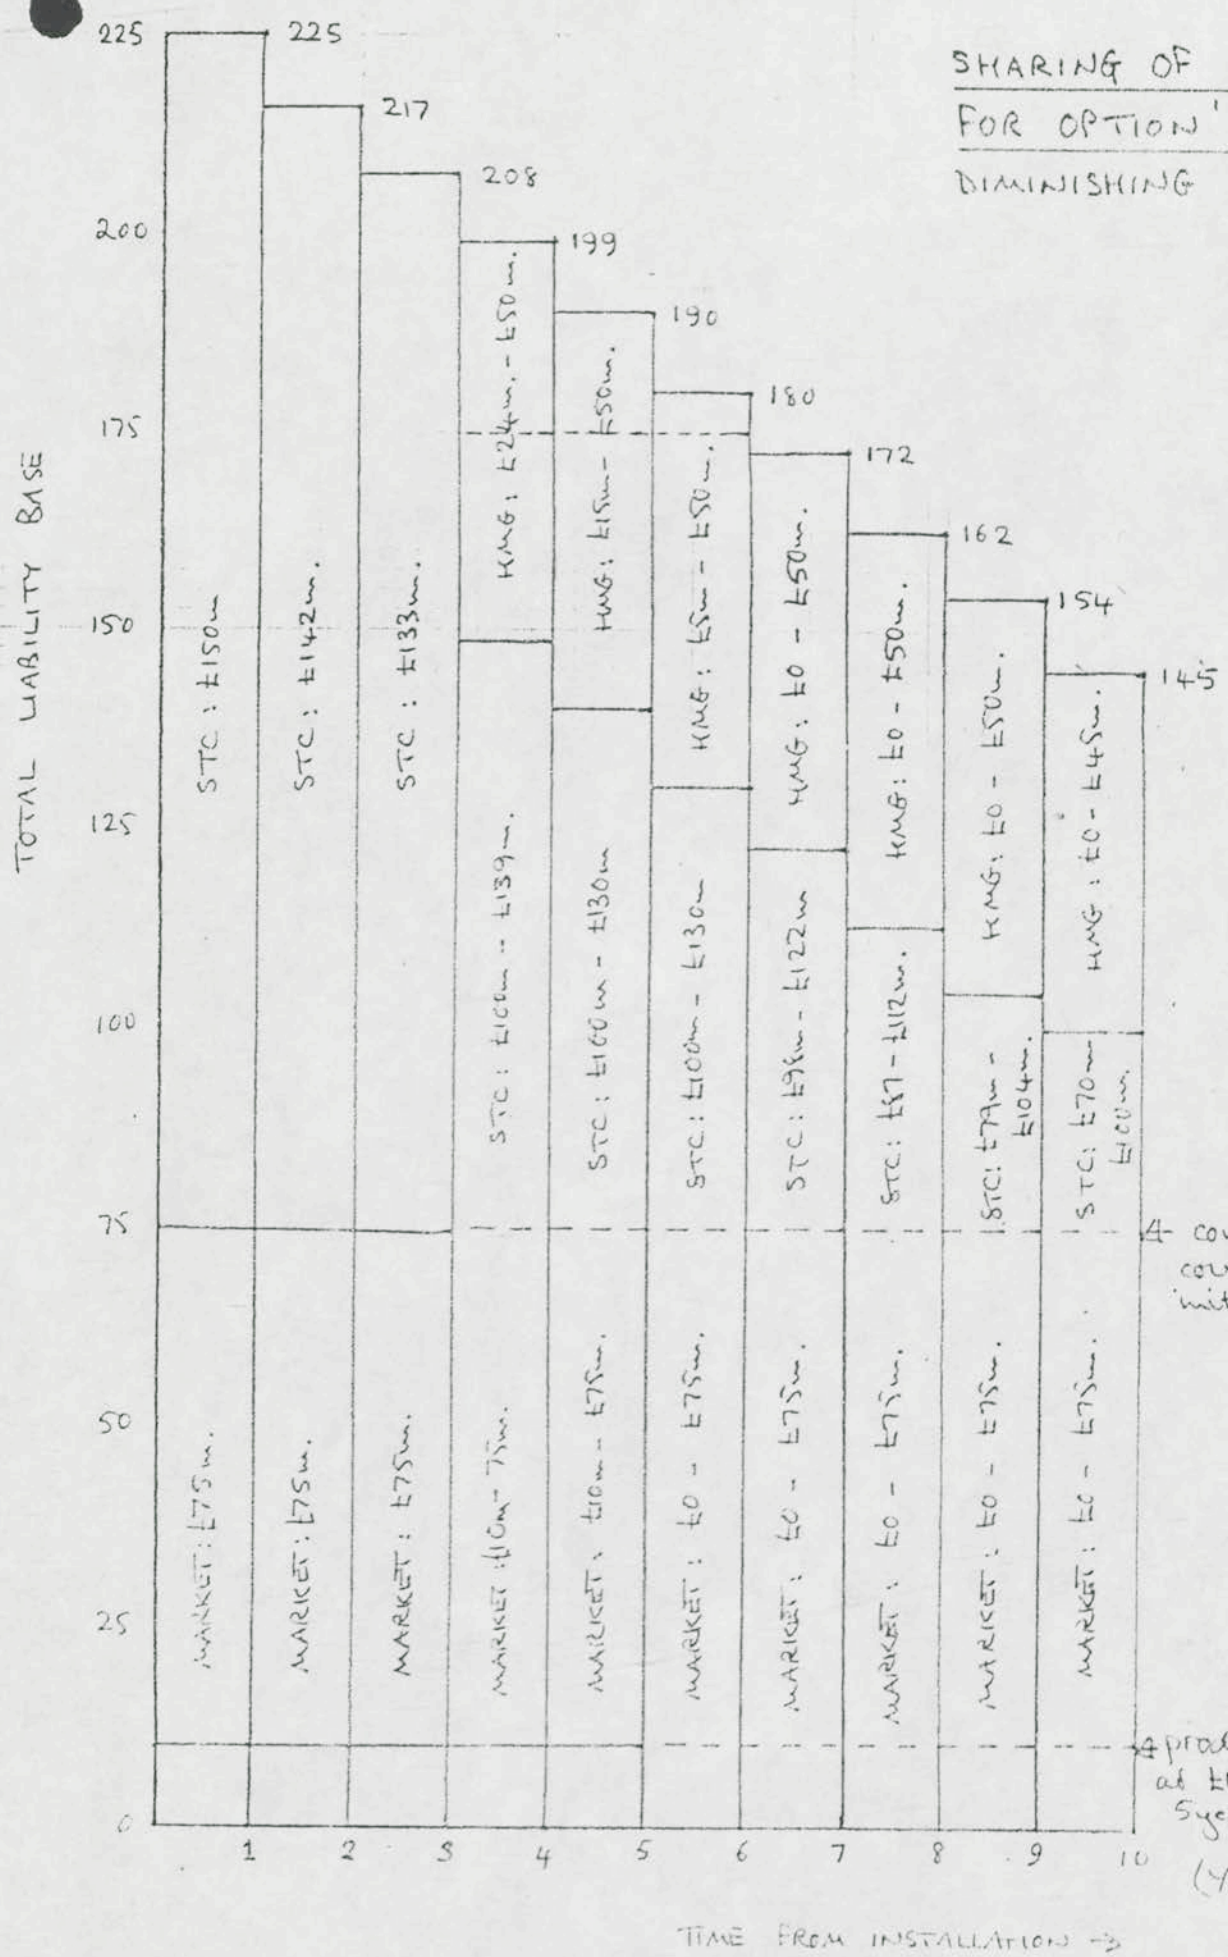 SHARING OF
FOR OPTION
DIMINISHING
TOTAL LIABILITY BASE
225
200
175
150
125
100
75
50
25
0
225
217
208
199
190
180
172
162
154
145
STC : £150m
STC : £142m.
STC : £133m.
HMG : £24m. - £50m.
HMG : £15m - £50m.
HMG : £5m - £50m.
HMG : £0 - £50m.
HMG : £0 - £50m.
HMG : £0 - £50m.
HMG : £0 - £45m.
STC : £100m - £139m.
STC : £100m - £130m
STC : £100m - £130m
STC : £98m - £122m
STC : £87 - £112m.
STC : £79m -
£104m.
STC : £70m
£100m.
MARKET : £75m.
MARKET : £75m.
MARKET : £75m.
MARKET : £10m - 75m.
MARKET : £10m - £75m.
MARKET : £0 - £75m.
MARKET : £0 - £75m.
MARKET : £0 - £75m.
MARKET : £0 - £75m.
MARKET : £0 - £75m.
1 2 3 4 5 6 7 8 9 10
TIME FROM INSTALLATION →
at